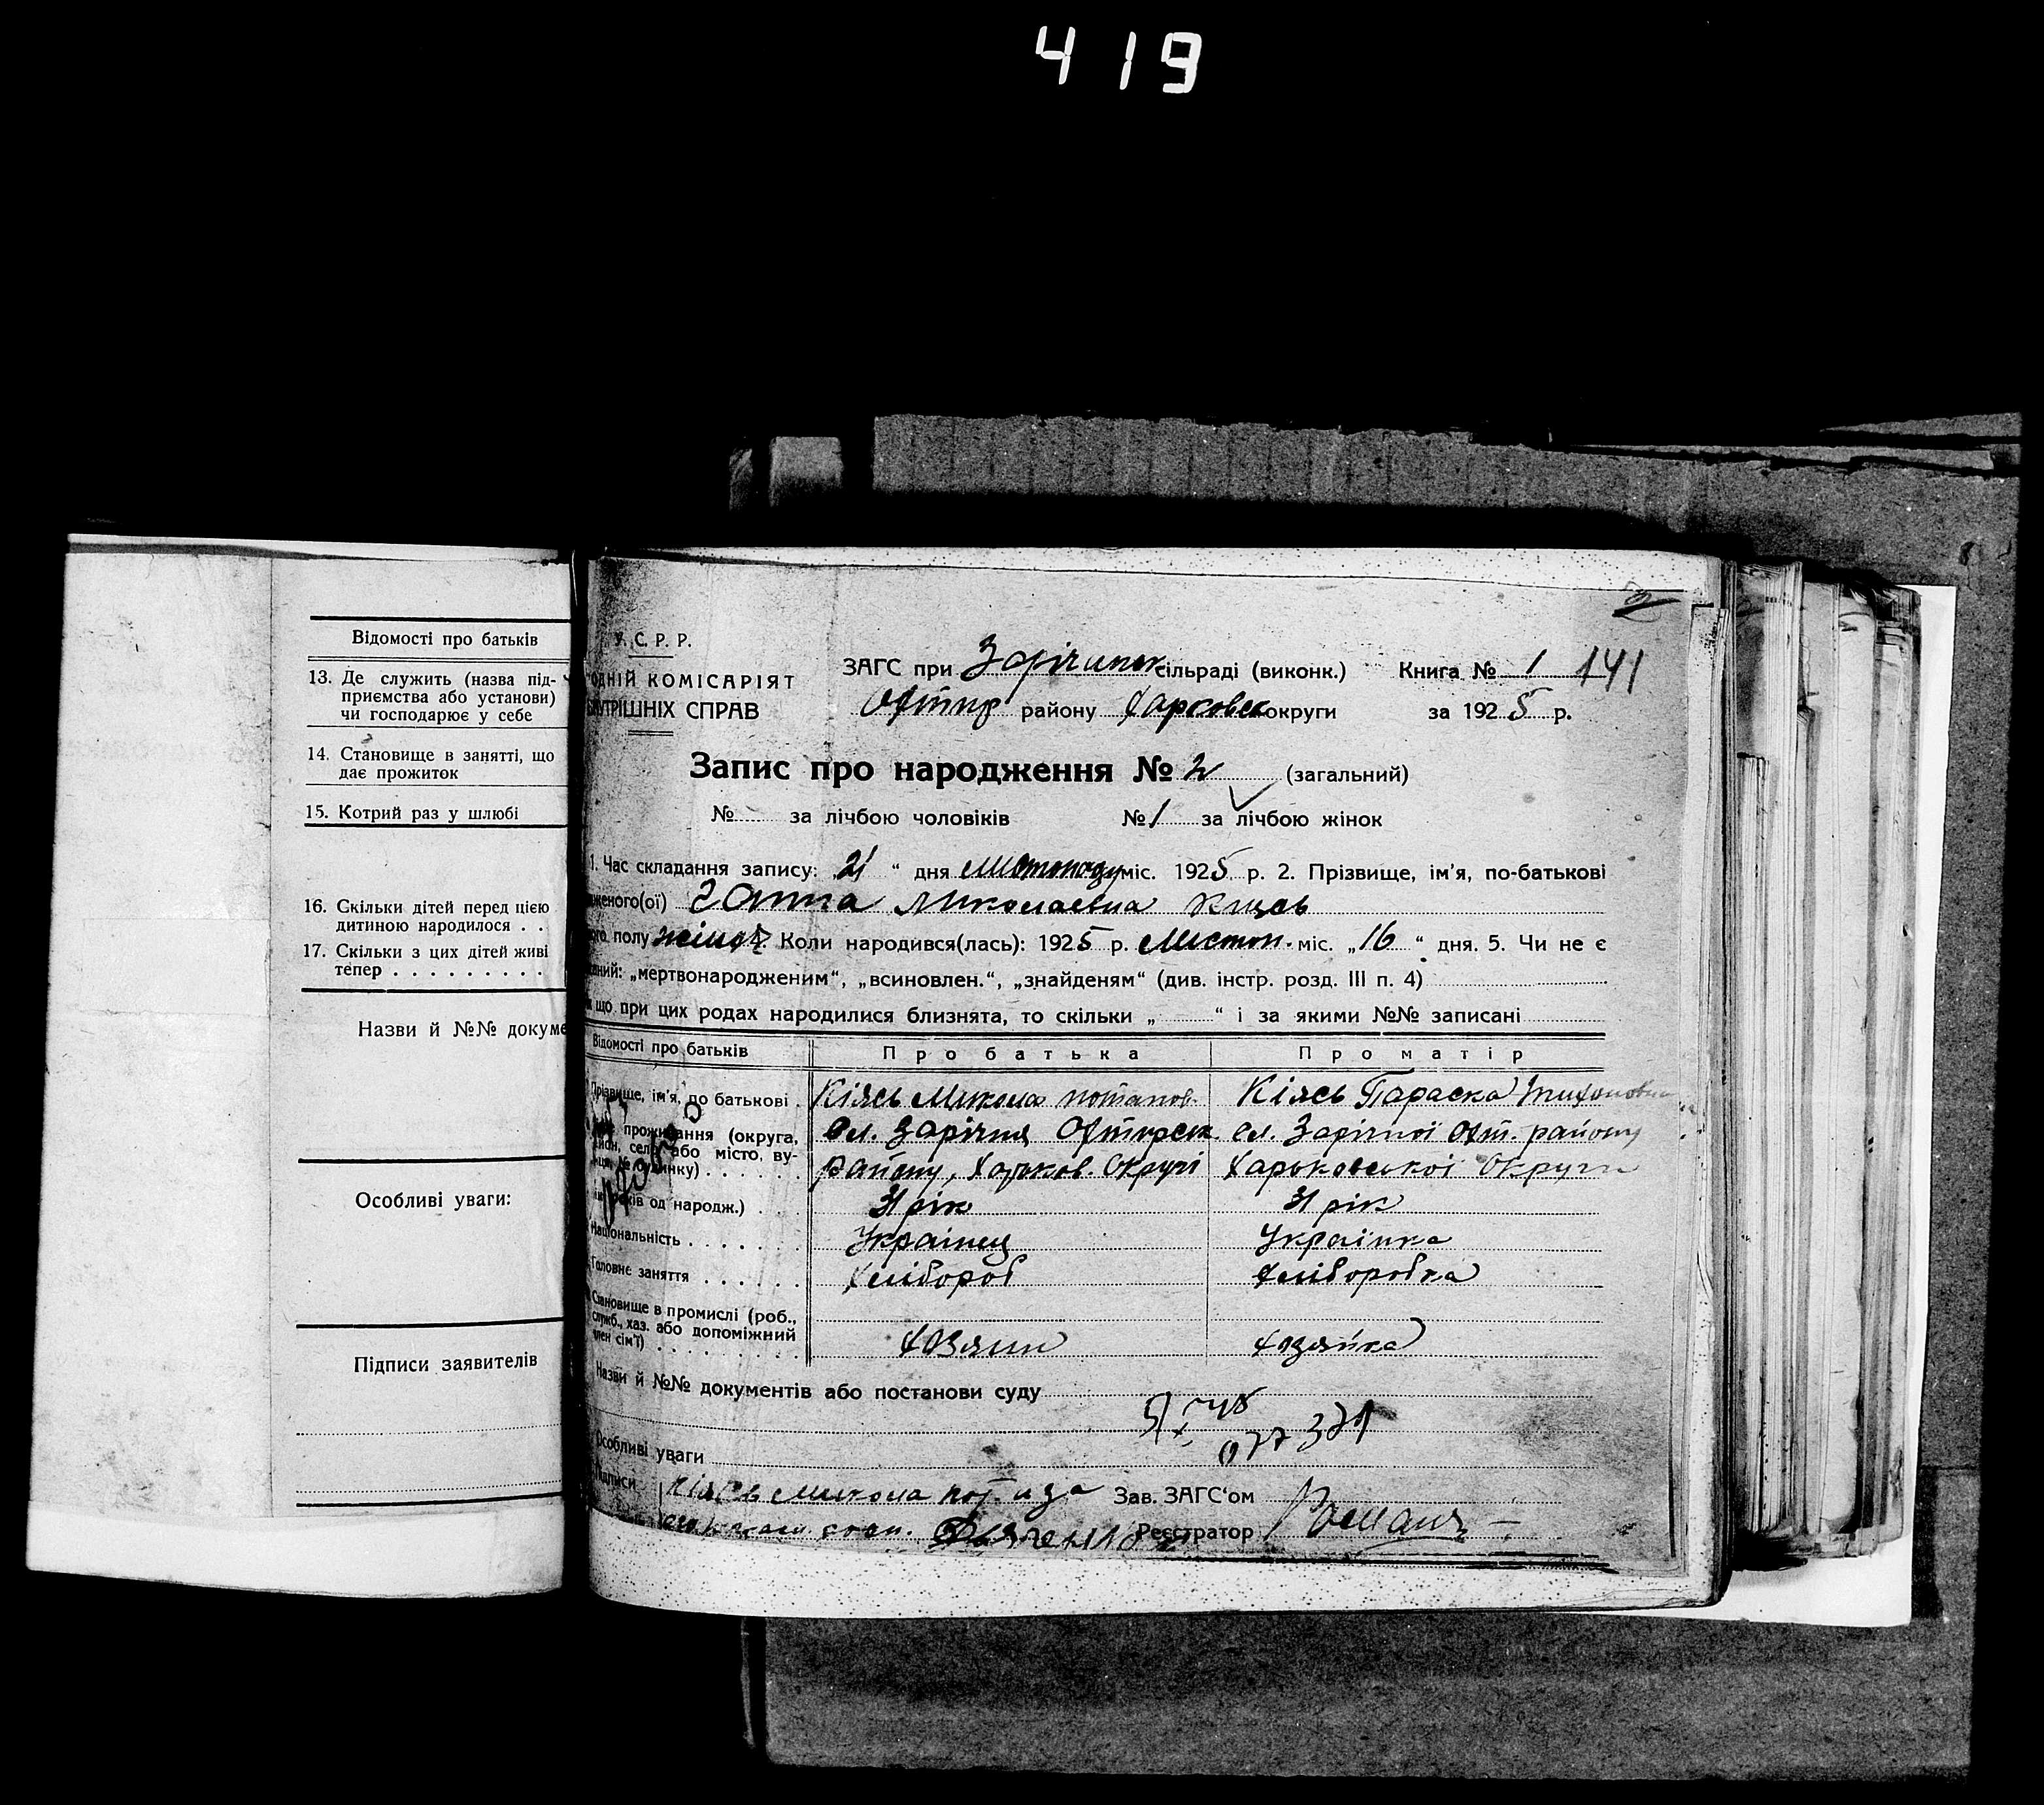 419
Відомості про батьків
13. Де служить (назва під-
приємства або установи)
чи господарює у себе
14. Становище в занятті, що
дає прожиток
15. Котрий раз у шлюбі
16. Скільки дітей перед цією
дитиною народилося . .
17. Скільки з цих дітей живі
тепер . . . . . . . . .
Назви й №№ докуме
Особливі уваги:
Підписи заявителів
У. С. Р. Р.
ОДНІЙ КОМІСАРІЯТ
УТРІШНІХ СПРАВ
ЗАГС при Зарічанск сільраді (виконк.) Книга № 1 141
Охтир району Харковск округи за 1925 р.
Запис про народження № 2 (загальний)
№ за лічбою чоловіків № 1 за лічбою жінок
1. Час складання запису: „21“ дня Листопаду міс. 1925 р. 2. Прізвище, ім'я, по-батькові
женого(ої) Ганна Миколаевна Кіясь
ого полу жіноч. Коли народився(лась): 1925 р. Листоп. міс. „16“ дня. 5. Чи не є
ений: „мертвонародженим“, „всиновлен.“, „знайденям“ (див. інстр. розд. III п. 4)
що при цих родах народилися близнята, то скільки „ “ і за якими №№ записані
Відомості про батьків Про батька Про матір
Прізвище, ім'я, по батькові . Кіясь Микола потапов. Кіясь Параска Тихоновна
проживання (округа, Сл. Зарічня Охтирск. Сл. Зарічної Охт. району
село або місто, ву- району, Харьков. Округі Харьковської Округи
будинку) . . . . .
років од народж.) . . 31 рік 31 рік
Національність . . . . . . Українец Українка
Головне заняття . . . . . . Хлібороб Хліборобка
Становище в промислі (роб.,
служб., хаз. або допоміжний
член сім'ї) . . . . . . . . Хозяин Хозяйка
Назви й №№ документів або постанови суду
077371
Особливі уваги
Підписи Кіясь Микола пот. а за Зав. ЗАГС‘ом
Реєстратор